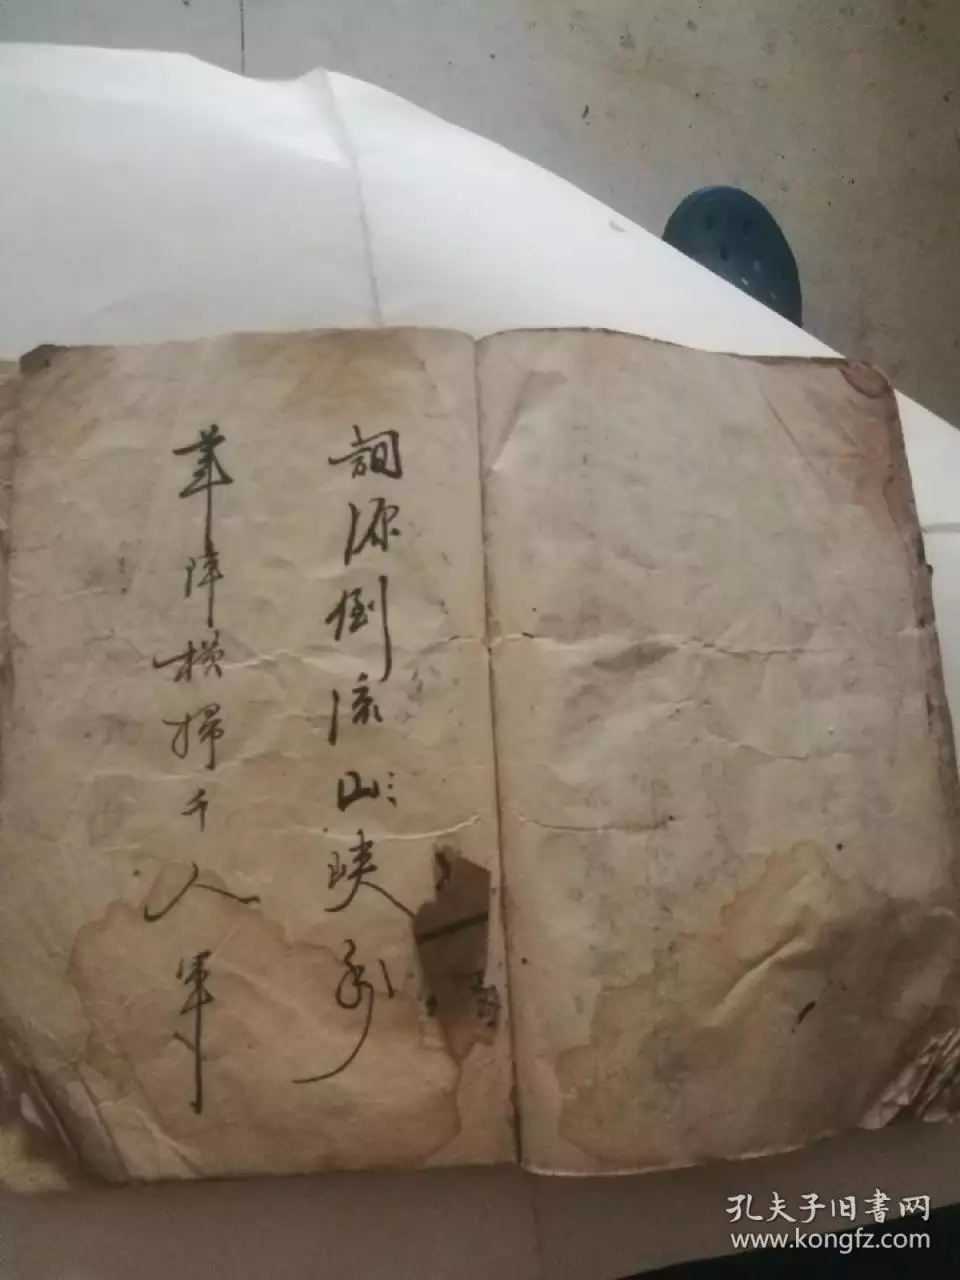 詞源倒流山峽水
筆陣橫掃千人軍
孔夫子旧書网
www.kongfz.com